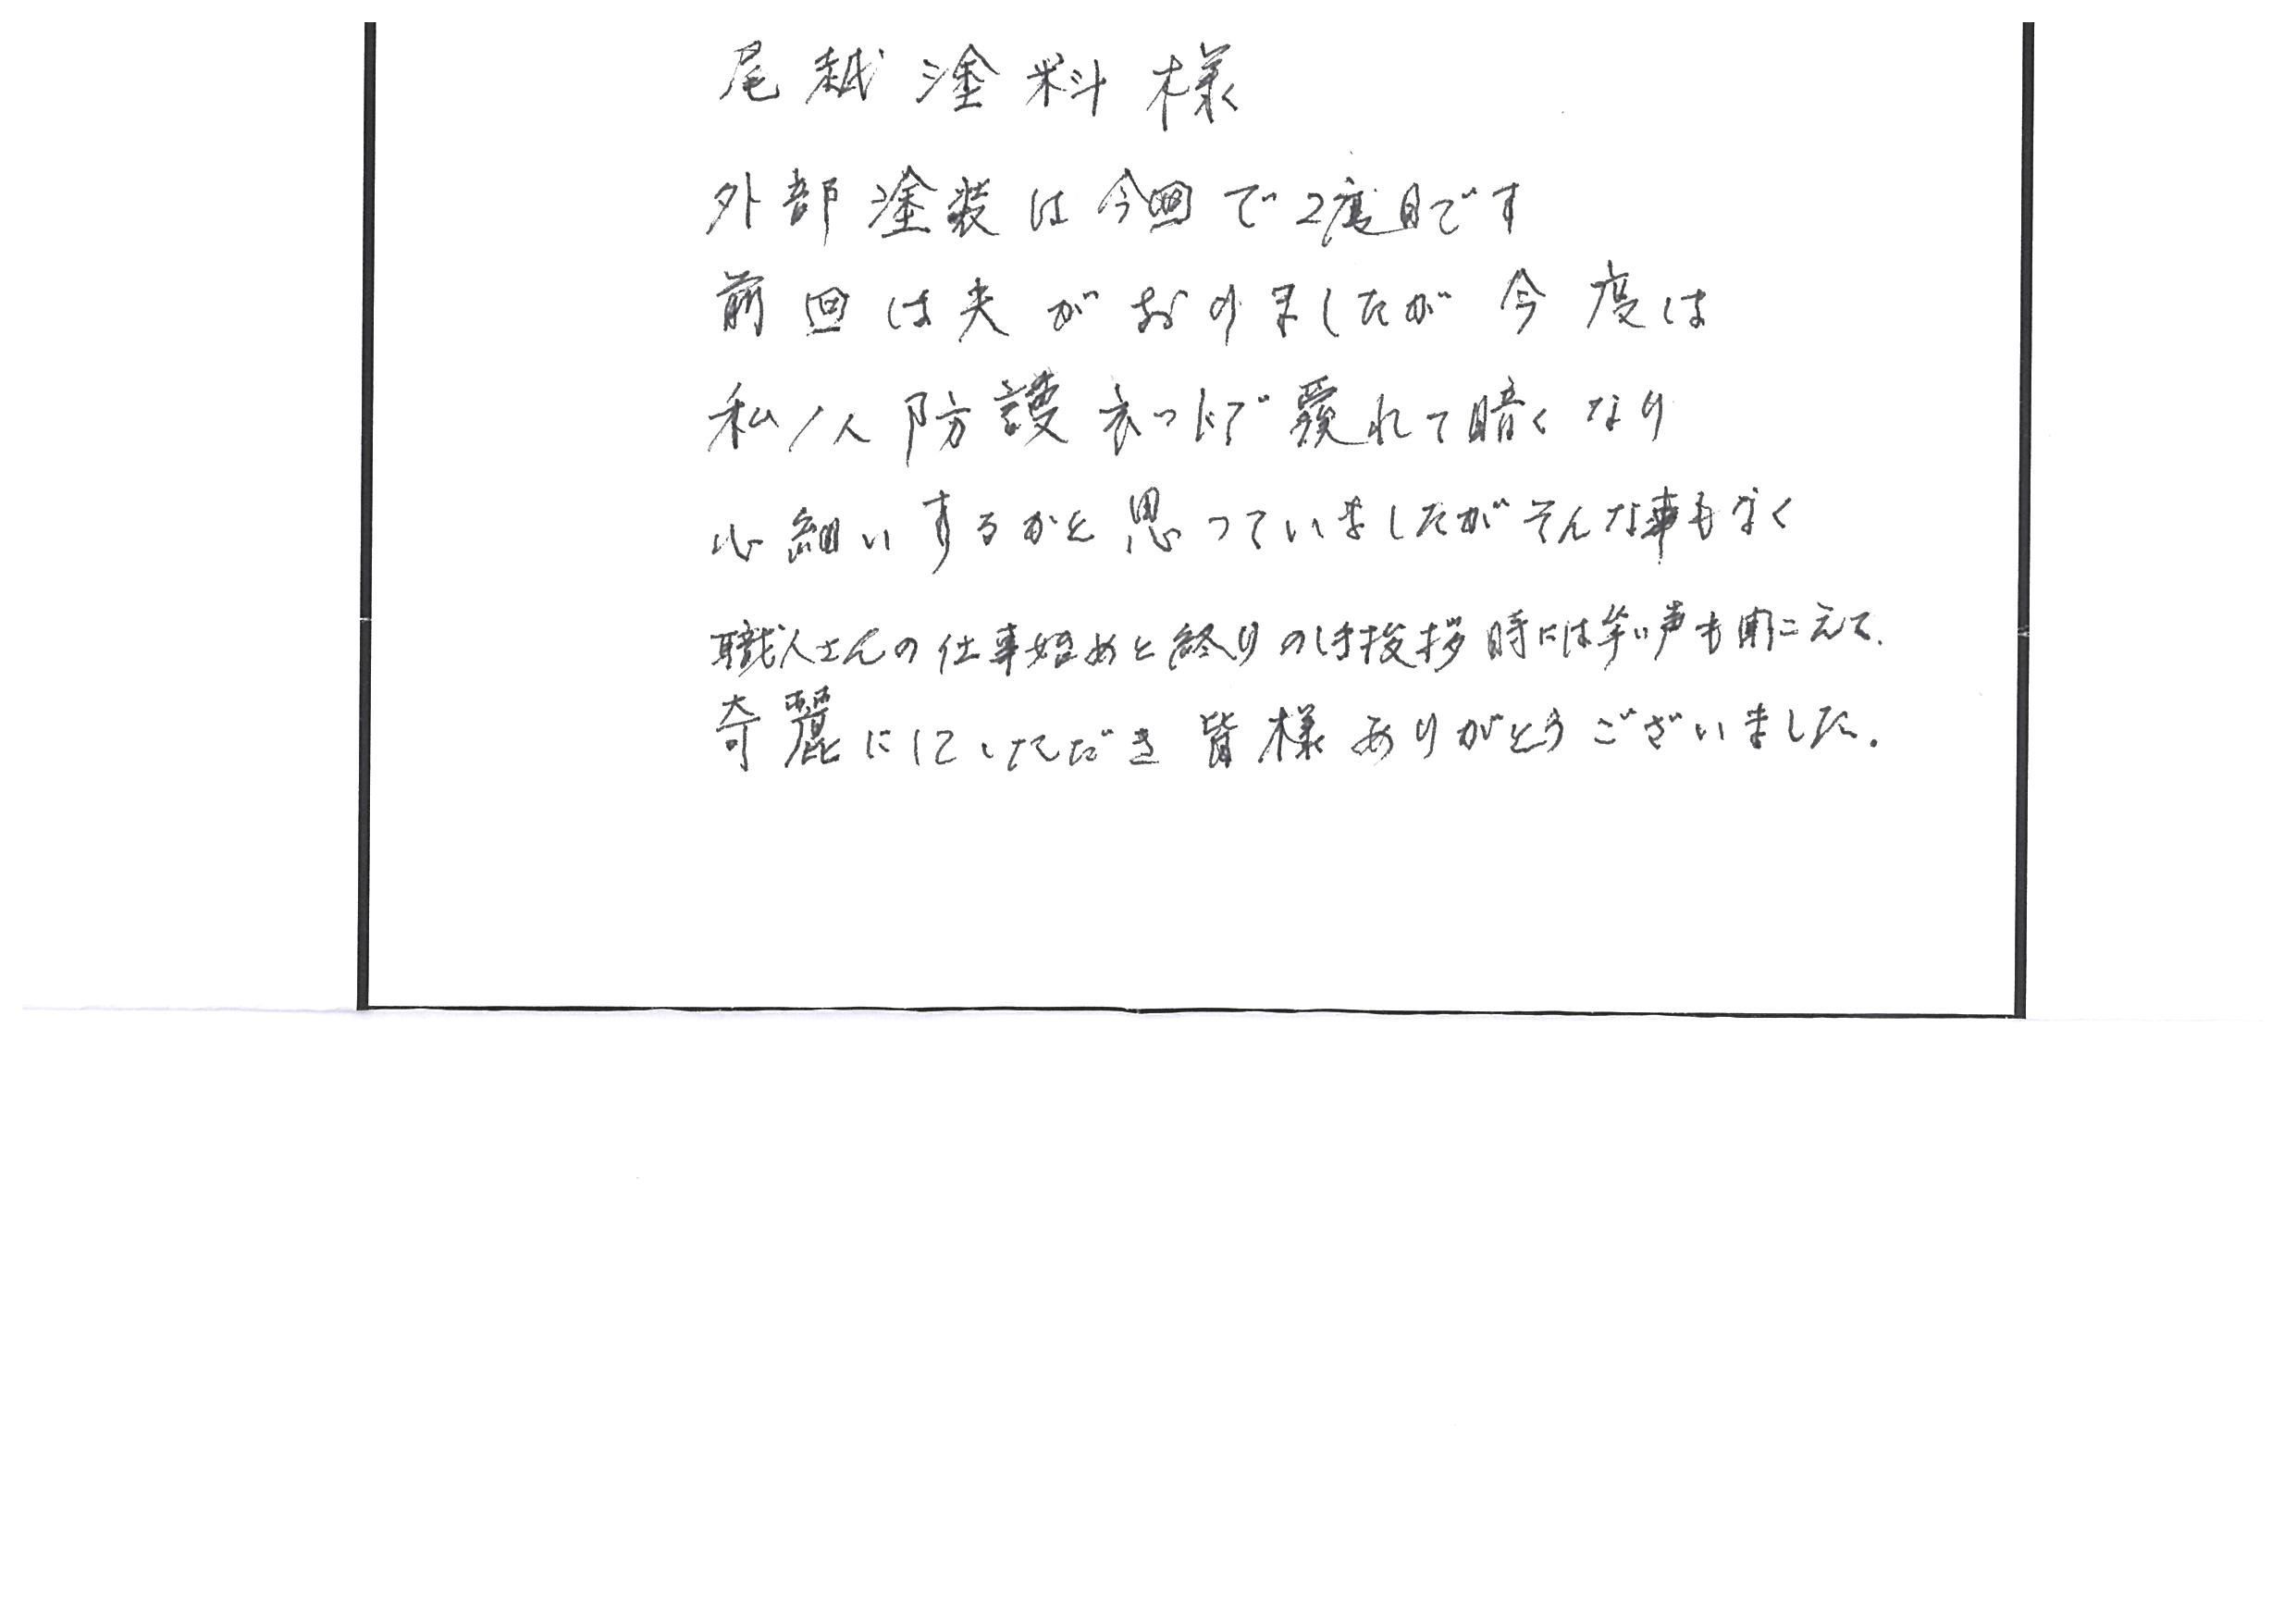 尾越塗料様
外部塗装は今回で2度目です
前回は夫がおりましたが今度は
私1人防護 で覆れて暗くなり
心細いするかと思っていましたがそんな事もなく
職人さんの仕事始めと終りの 挨拶時には笑い声も聞こえて、
奇麗にしていただき皆様ありがとうございました。